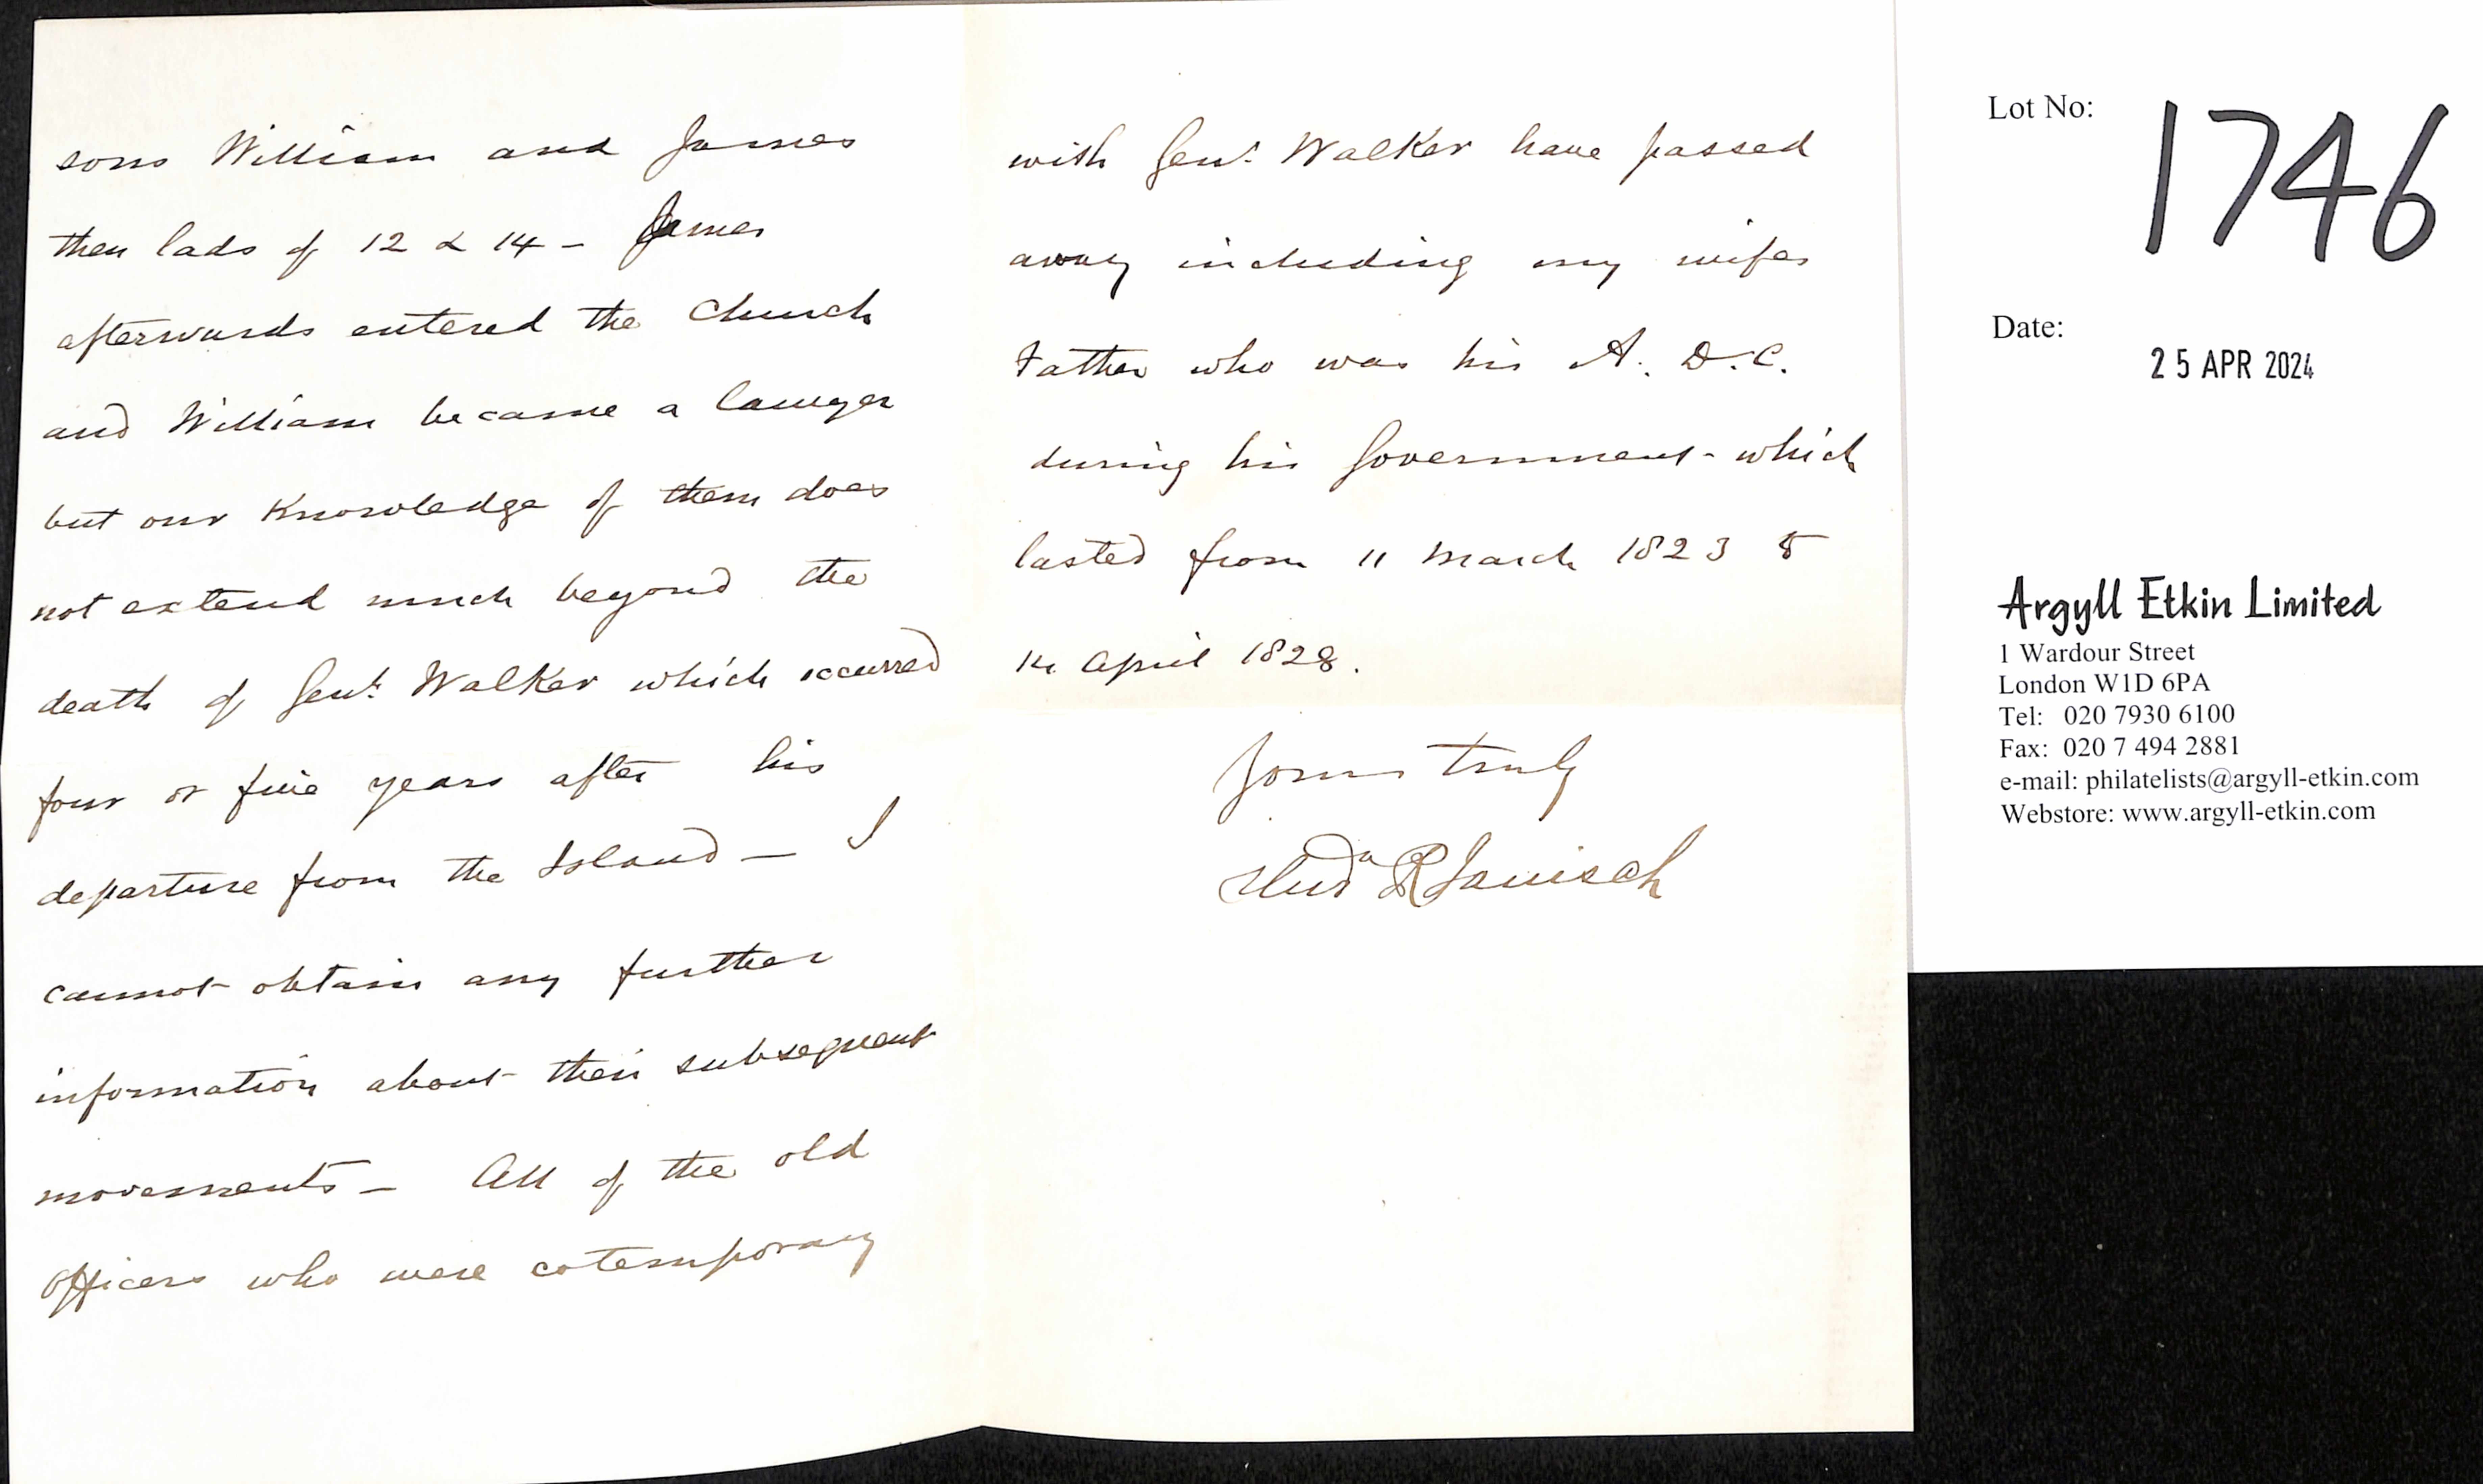 sons William and James
then lads of 12 & 14 - James
afterwards entered the Church
and William became a lawyer
but our Knowledge of them does
not extend much beyond the
death of Genl. Walker which occurred
four or five years after his
departure from the Island - I
cannot obtain any further
information about their subsequent
movements - All of the old
officers who were cotemporary
with Genl. Walker have passed
away including my wifes
Father who was his A. D. C.
during his Government - which
lasted from 11 March 1823 to
April 1828.
Yours truly
Hudn R Janisch
Lot No: 1746
Date:
25 APR 2024
Argyll Etkin Limited
1 Wardour Street
London W1D 6PA
Tel: 020 7930 6100
Fax: 020 7 494 2881
e-mail: philatelists@argyll-etkin.com
Webstore: www.argyll-etkin.com